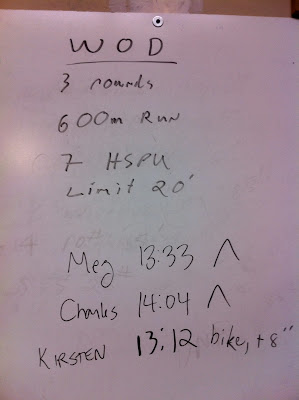 WOD
3 rounds
600m Run
7 HSPU
Limit 20'
Meg 13:33 Λ
Charles 14:04 Λ
KIRSTEN 13:12 bike, +8"